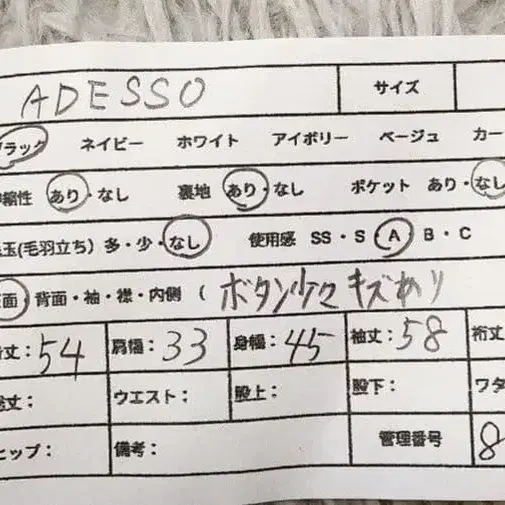 ADESSO サイズ
ブラック ネイビー ホワイト アイボリー ベージュ カー
伸縮性 あり・なし 裏地 あり・なし ポケット あり・なし
毛玉(毛羽立ち) 多・少・なし 使用感 SS・S A B・C
面・背面・袖・襟・内側 ( ボタン少々キズあり
丈:54 肩幅:33 身幅:45 袖丈:58 裄丈
総丈: ウエスト: 股上: 股下: ワタ
ヒップ: 備考: 管理番号 8